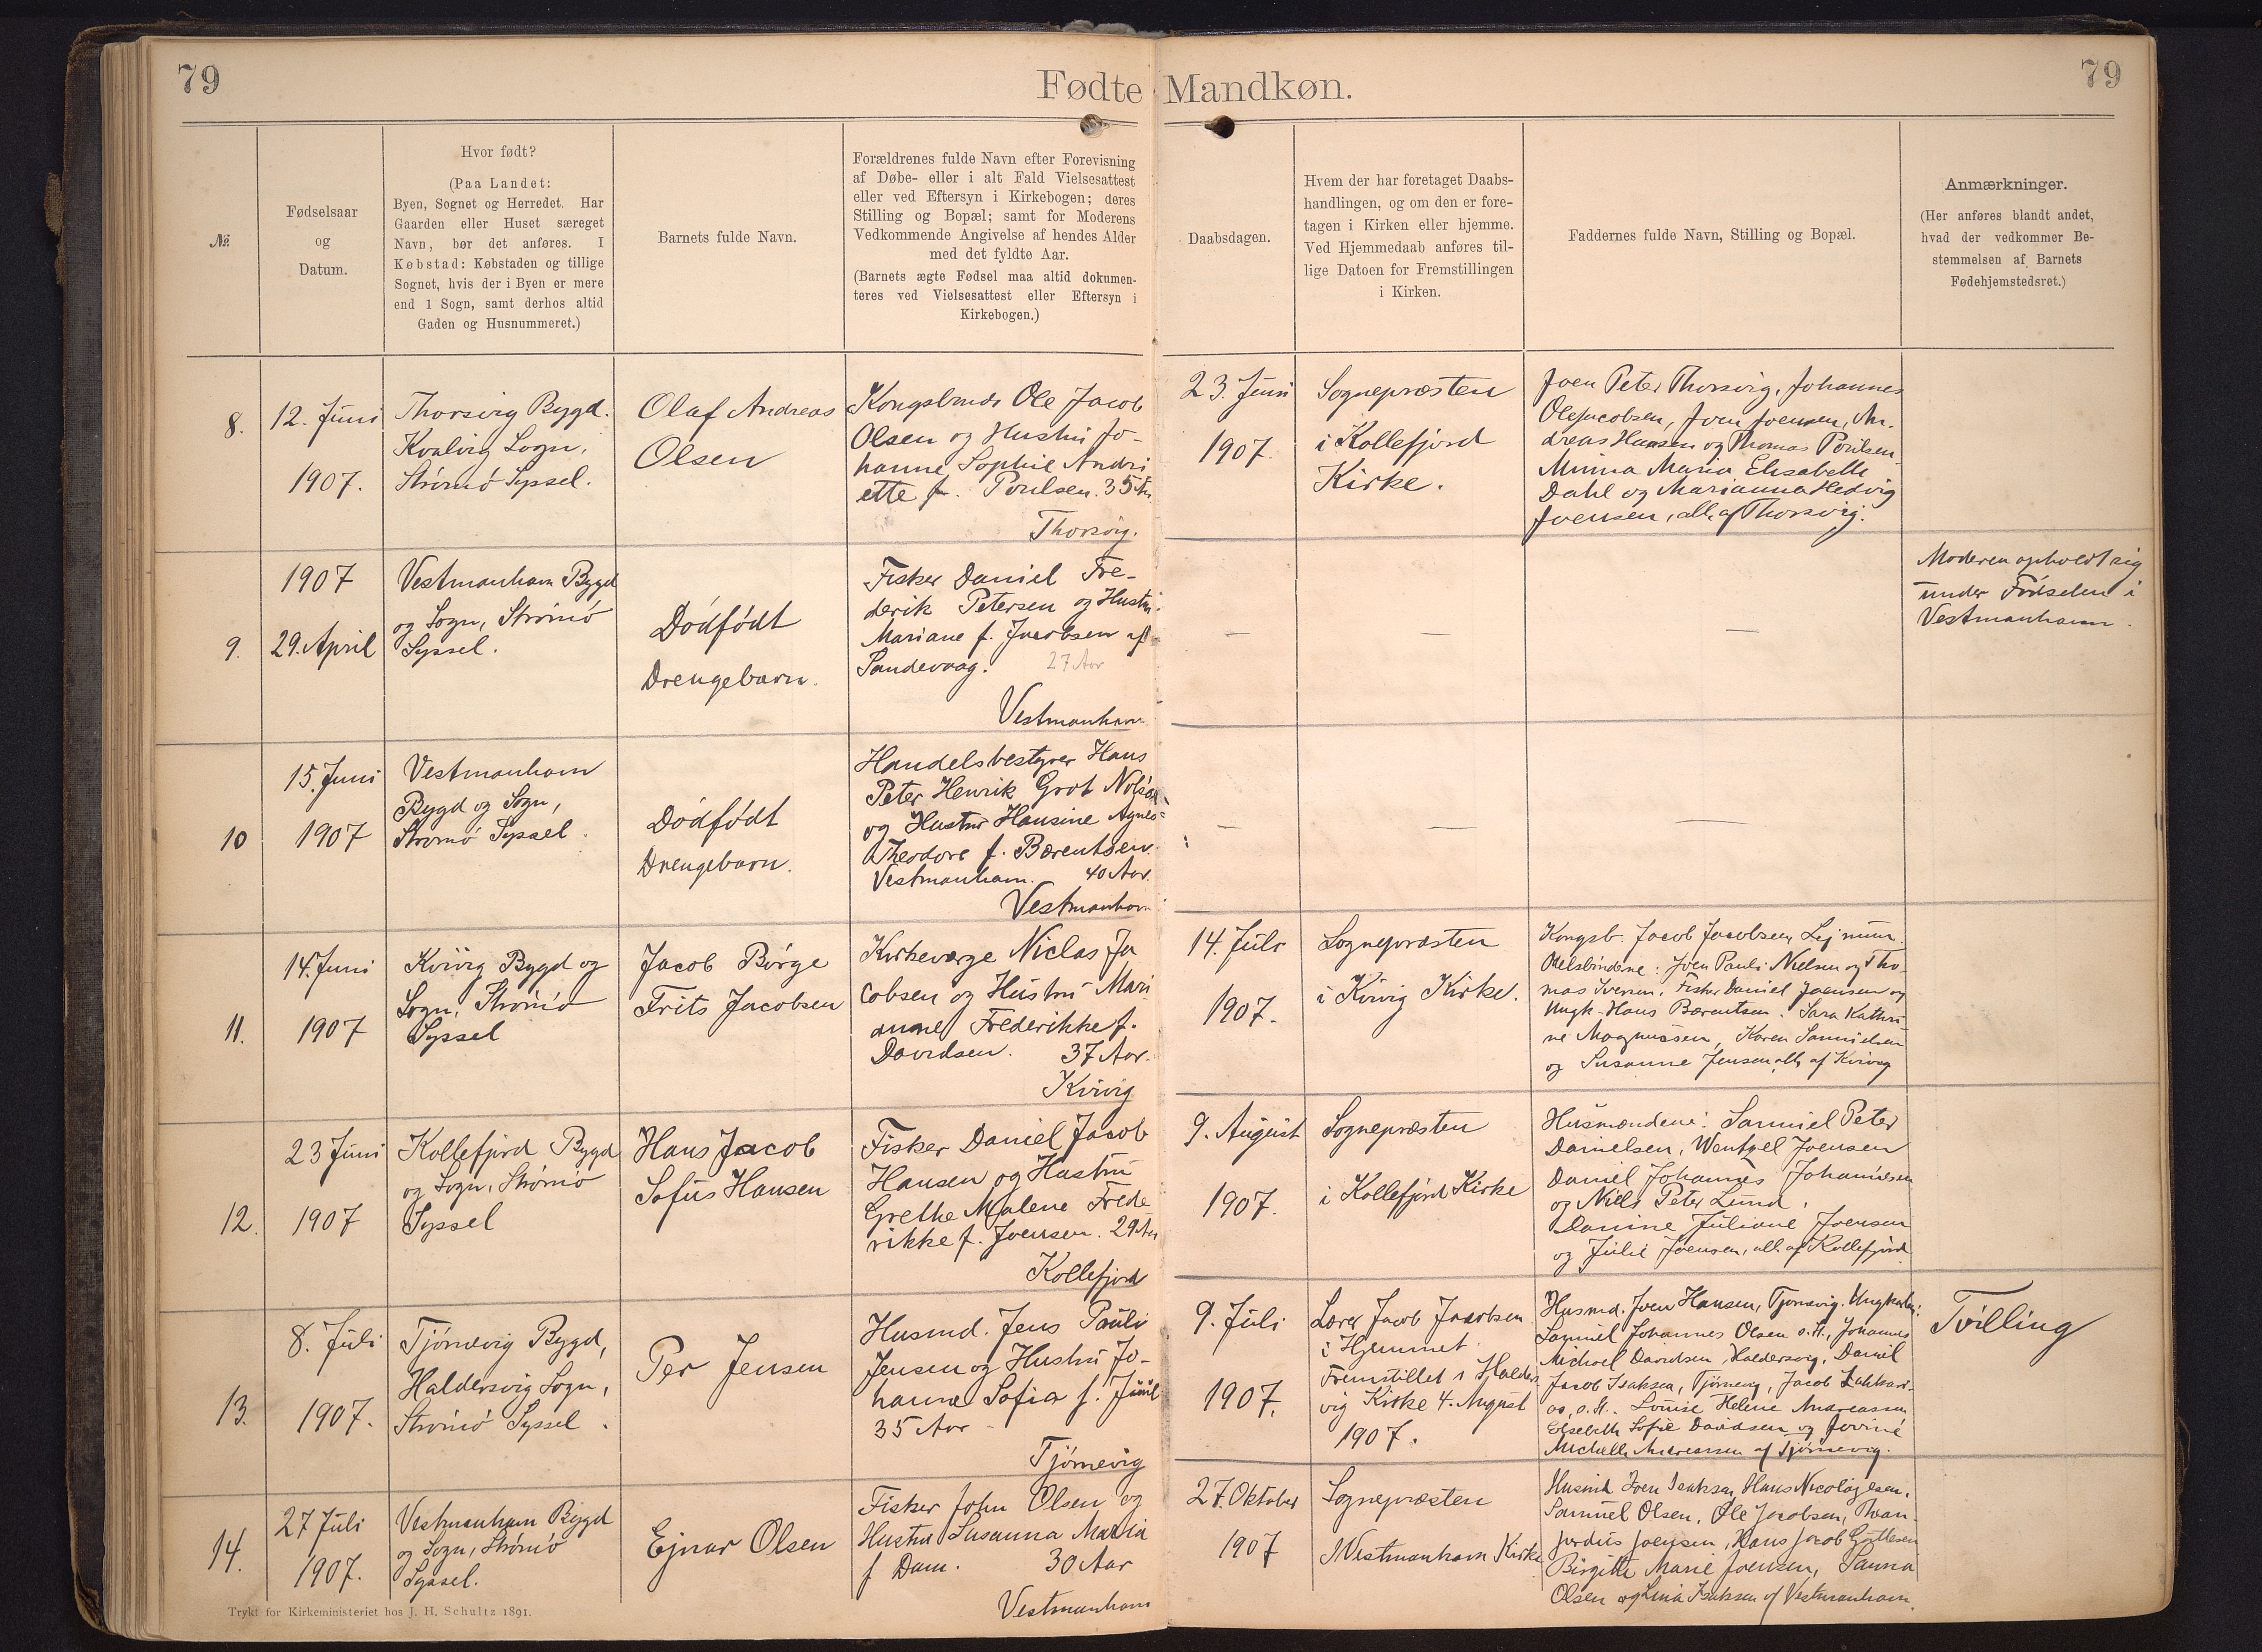 79
Fødte Mandkøn.
79
№
Fødselsaar
og
Datum.
Hvor født?
(Paa Landet:
Byen, Sognet og Herredet. Har
Gaarden eller Huset særeget
Navn, bør det anføres. I
Købstad: Købstaden og tillige
Sognet, hvis der i Byen er mere
end 1 Sogn, samt derhos altid
Gaden og Husnummeret.)
Barnets fulde Navn.
Forældrenes fulde Navn efter Forevisning
af Døbe- eller i alt Fald Vielsesattest
eller ved Eftersyn i Kirkebogen; deres
Stilling og Bopæl; samt for Moderens
Vedkommende Angivelse af hendes Alder
med det fyldte Aar.
(Barnets ægte Fødsel maa altid dokumen-
teres ved Vielsesattest eller Eftersyn i
Kirkebogen.)
Daabsdagen.
Hvem der har foretaget Daabs-
handlingen, og om den er fore-
tagen i Kirken eller hjemme.
Ved Hjemmedaab anføres til-
lige Datoen for Fremstillingen
i Kirken.
Faddernes fulde Navn, Stilling og Bopæl.
Anmærkninger.
(Her anføres blandt andet,
hvad der vedkommer Be-
stemmelsen af Barnets
Fødehjemstedsret.)
8.
12. Juni
1907.
Thorsvig Bygd.
Kvalvig Sogn,
Strømø Syssel.
Olaf Andreas
Olsen
Ole Jacob
Olsen og Hustru Jo-
hanne Sophie Andri
ette f. Poulsen. 35 Aar
Thorsvig.
23. Juni
1907.
Sognepræsten
i Kollefjord
Kirke.
Joen Peter Thorsvig, Johannes
Olejacobsen, Joen Joensen, An-
dreas Hansen og Thomas Poulsen
Minna Maria Elisabeth
Dahl og Marianna Hedvig
Joensen, alle af Thorsvig.
9.
1907
29. April
Vestmanhavn Bygd
og Sogn, Strømø
Syssel.
Dødfødt
Drengebarn.
Fisker Daniel Fre-
derik Petersen og Hustru
Mariane f. Jacobsen af
Sandevaag. 27 Aar
Vestmanhavn
—
—
—
Moderen opholdt sig
under Fødselen i
Vestmanhavn.
10
15. Juni
1907
Vestmanhavn
Bygd og Sogn,
Strømø Syssel.
Dødfødt
Drengebarn.
Handelsbestyrer Hans
Peter Henrik Grot
og Hustru Hansine Agnes
Theodora f. Bærentsen.
Vestmanhavn. 40 Aar.
Vestmanhavn
—
—
—
11.
14. Juni
1907
Kvivig Bygd og
Sogn, Strømø
Syssel
Jacob Börge
Frits Jacobsen
Kirkeværge Niclas Ja
cobsen og Hustru Mari
anne Frederikke f.
Davidsen. 37 Aar.
Kvivig
14. Juli
1907.
Sognepræsten
i Kvivig Kirke.
Kongsb. Jacob Jacobsen,
Joen Pauli Nielsen og Tho-
mas Iversen, Fisker Daniel Joensen og
Ungk. Hans Bærentsen. Sara Kathri-
ne Magnussen, Karen Samuelsen
og Susanne Jensen, alle af Kvivig
12.
23 Juni
1907
Kollefjord Bygd
og Sogn, Strømø
Syssel
Hans Jacob
Sofus Hansen
Fisker Daniel Jacob
Hansen og Hustru
Grethe Malene Frede
rikke f. Joensen. 29 Aar
Kollefjord
9. August
1907.
Sognepræsten
i Kollefjord Kirke
Husmændene: Samuel Peter
Danielsen, Wentzel Joensen
Daniel Johannes Johannesen
og Niels Peter Lund.
Danine Juliane Joensen
og Julie Joensen, alle af Kollefjord
13.
8. Juli
1907.
Tjørnevig Bygd,
Haldersvig Sogn,
Strømø Syssel.
Per Jensen
Husmd. Jens Pauli
Jensen og Hustru Jo-
hanne Sofia f. Juul
35 Aar
Tjørnevig
9. Juli
1907.
Lærer Jacob Jacobsen
i Hjemmet
Fremstillet i Halders
vig Kirke 4. August
1907.
Husmd. Joen Hansen, Tjørnevig.
Samuel Johannes Olsen s. St., Johannes
Michael Davidsen, Haldersvig, Daniel
Jacob Isaksen, Tjørnevig, Jacob
s. St.. Louise Helene Andreassen
Elsebeth Sofie Davidsen og Jovine
Michelle Andreassen af Tjørnevig.
Tvilling
14.
27 Juli
1907.
Vestmanhavn Bygd
og Sogn, Strømø
Syssel.
Ejnar Olsen
Fisker John Olsen og
Hustru Susanna Maria
f Dam. 30 Aar
Vestmanhavn
27. Oktober
1907
Sognepræsten
i Vestmanhavn Kirke
Husmd Joen Isaksen, Hans Nicolajesen,
Samuel Olsen, Ole Jacobsen,
Joensen, Hans Jacob
Birgitte Marie Joensen, Sanna
Olsen og Lina Isaksen af Vestmanhavn.
Trykt for Kirkeministeriet hos J. H. Schultz 1891.